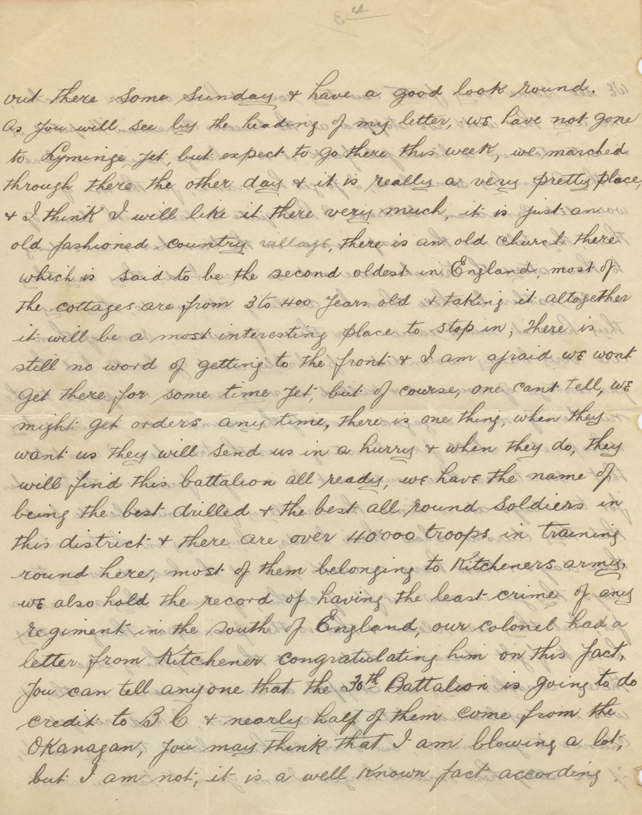 3rd
out there some Sunday & have a good look round.
As you will see by the heading of my letter, we have not gone
to Lyminge yet, but expect to go there this week, we marched
through there the other day & it is really a very pretty place,
& I think I will like it there very much, it is just an
old fashioned country village, there is an old church there
which is said to be the second oldest in England most of
the cottages are from 3 to 400 years old & taking it altogether
it will be a most interesting place to stop in, There is
still no word of getting to the front & I am afraid we wont
get there for some time yet, but of course, one cant tell, we
might get orders any time, there is one thing, when they
want us they will send us in a hurry & when they do, they
will find this battalion all ready, we have the name of
being the best drilled & the best all round Soldiers in
this district & there are over 40000 troops in training
round here, most of them belonging to Kitcheners army,
we also hold the record of having the least crime of any
regiment in the south of England, our colonel had a
letter from Kitchener congratulating him on this fact,
You can tell anyone that the 30th Battalion is going to do
credit to B C & nearly half of them come from the
Okanagan, you may think that I am blowing a lot,
but I am not, it is a well known fact according